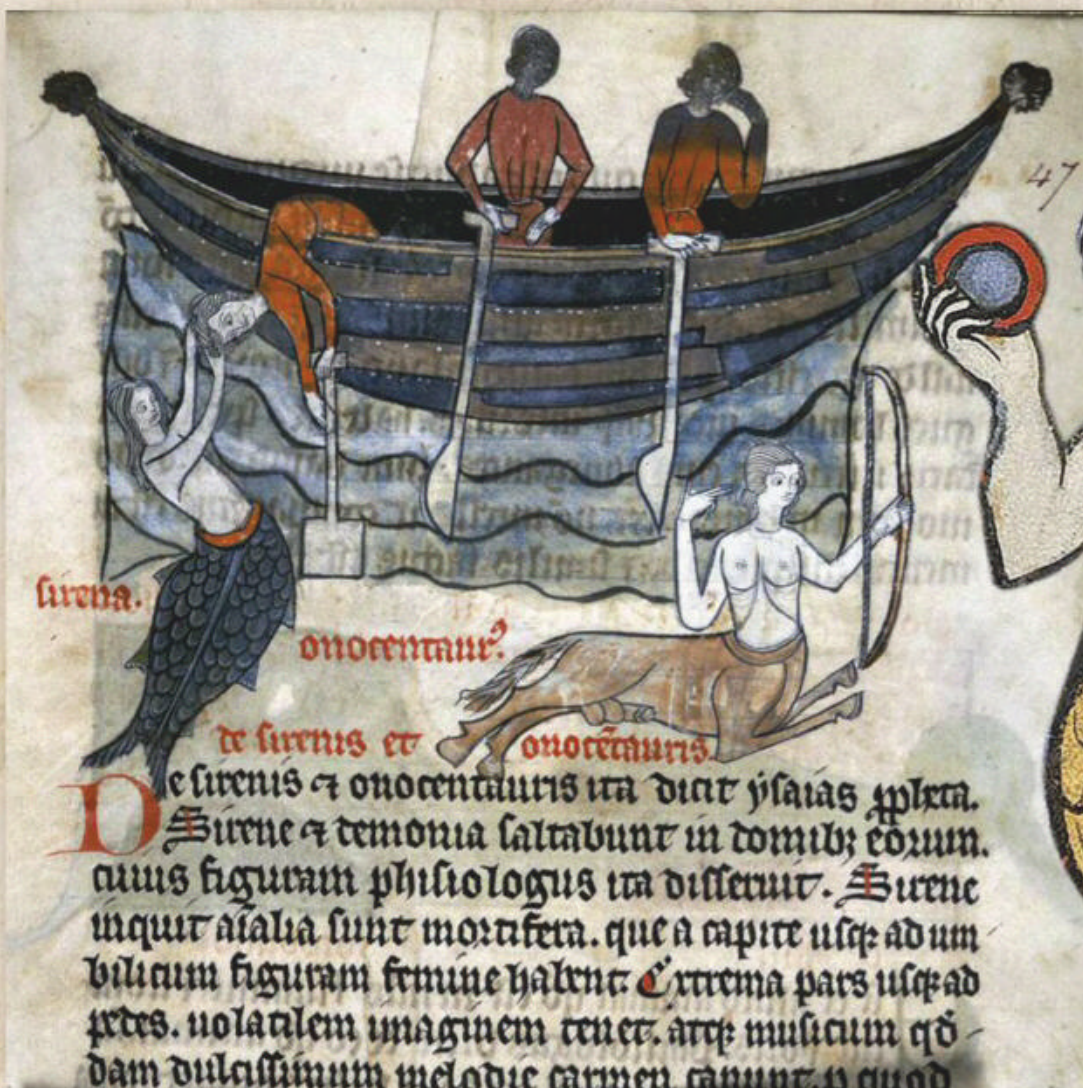 47
sirena.
onocentaur⁹
de sirenis et onocētauris.
De sirenis ⁊ onocentauris ita dicit ysaias ꝓpheta.
Sirene ⁊ demonia saltabunt in domibꝫ eorum.
cuius figuram phisiologus ita disseruit. Sirene
inquit aīalia sunt mortifera. que a capite usqꝫ ad um
bilicum figuram femine habent. Extrema pars usqꝫ ad
pedes. uolatilem imaginem tenet. atqꝫ musicum qđ-
dam dulcissimum melodie carmen canunt.